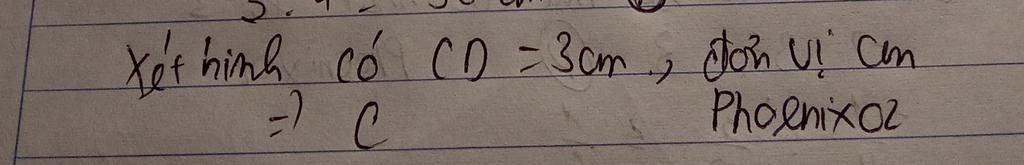 Xét hình có CD = 3cm, đơn vị cm
=> C
Phoenix02